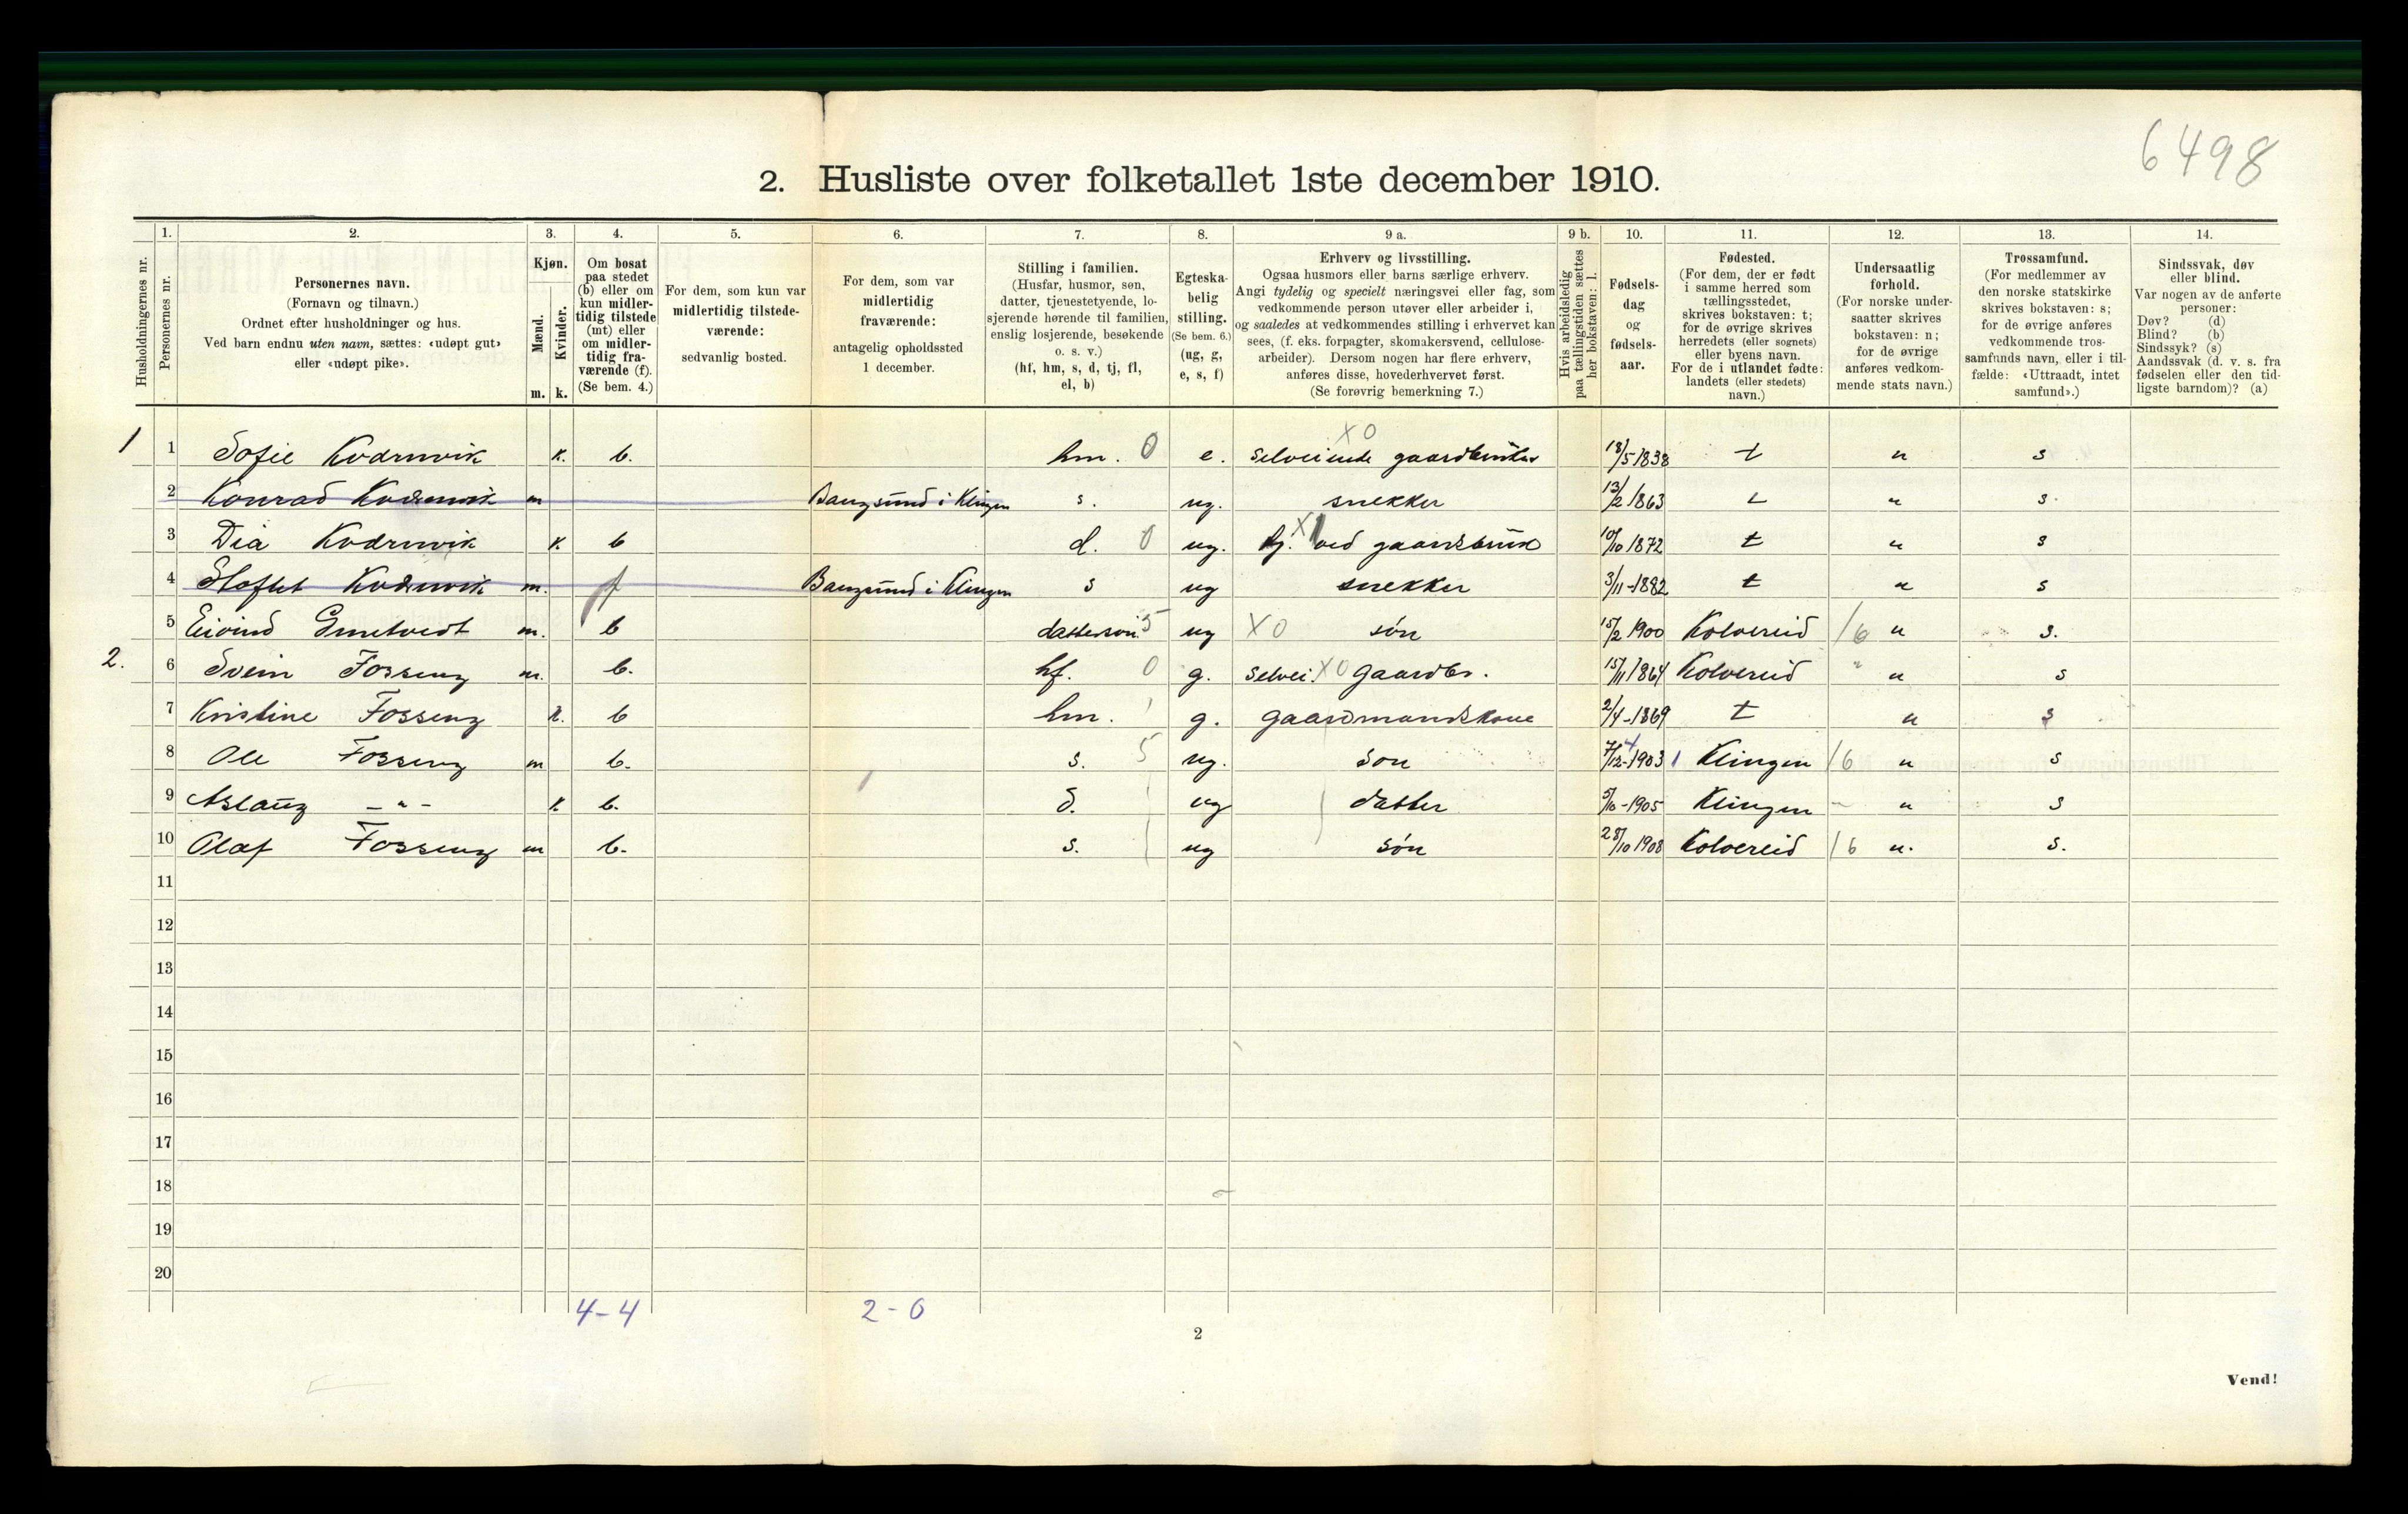 6498
2. Husliste over folketallet 1ste december 1910.
Husholdningernes nr.
1.
Personernes nr.
2.
Personernes navn.
(Fornavn og tilnavn.)
Ordnet efter husholdninger og hus.
Ved barn endnu uten navn, sættes: «udøpt gut»
eller «udøpt pike».
3.
Kjøn.
Mænd.
Kvinder.
m. k.
4.
Om bosat
paa stedet
(b) eller om
kun midler-
tidig tilstede
(mt) eller
om midler-
tidig fra-
værende (f).
(Se bem. 4.)
5.
For dem, som kun var
midlertidig tilstede-
værende:
sedvanlig bosted.
6.
For dem, som var
midlertidig
fraværende:
antagelig opholdssted
1 december.
7.
Stilling i familien.
(Husfar, husmor, søn,
datter, tjenestetyende, lo-
sjerende hørende til familien,
enslig losjerende, besøkende
o. s. v.)
(hf, hm, s, d, tj, fl,
el, b)
8.
Egteska-
belig
stilling.
(Se bem. 6.)
(ug, g,
e, s, f)
9 a.
Erhverv og livsstilling.
Ogsaa husmors eller barns særlige erhverv.
Angi tydelig og specielt næringsvei eller fag, som
vedkommende person utøver eller arbeider i,
og saaledes at vedkommendes stilling i erhvervet kan
sees, (f. eks. forpagter, skomakersvend, cellulose-
arbeider). Dersom nogen har flere erhverv,
anføres disse, hovederhvervet først.
(Se forøvrig bemerkning 7.)
9 b.
Hvis arbeidsledig
paa tællingstiden sættes
her bokstaven: l.
10.
Fødsels-
dag
og
fødsels-
aar.
11.
Fødested.
(For dem, der er født
i samme herred som
tællingsstedet,
skrives bokstaven: t;
for de øvrige skrives
herredets (eller sognets)
eller byens navn.
For de i utlandet fødte:
landets (eller stedets)
navn.)
12.
Undersaatlig
forhold.
(For norske under-
saatter skrives
bokstaven: n;
for de øvrige
anføres vedkom-
mende stats navn.)
13.
Trossamfund.
(For medlemmer av
den norske statskirke
skrives bokstaven: s;
for de øvrige anføres
vedkommende tros-
samfunds navn, eller i til-
fælde: «Uttraadt, intet
samfund».)
14.
Sindssvak, døv
eller blind.
Var nogen av de anførte
personer:
Døv? (d)
Blind? (b)
Sindssyk? (s)
Aandssvak (d. v. s. fra
fødselen eller den tid-
ligste barndom)? (a)
1 1 Sofie Kvarnvik k. b. hm. 0 e. X0 selveiende gaardbruker 18/5 1838 t n s
2 Konrad Kvarnvik m Bangsund i Klingen s. ug. snekker 13/2 1863 t n s.
3 Dia Kvarnvik k. b d. 0 ug. X tj. ved gaardsbruk 10/10 1872 t n s
4 Kvarnvik m. f Bangsund i Klingen s ug snekker 3/11-1882 t n s
5 Eivind m. b datterson 5 ug X0 søn 15/2 1900 Kolvereid 16 n s.
2. 6 Svein Fosseng m. b. hf. 0 g. selvei. X0 Gaardbr. 15/11 1864 Kolvereid " n s
7 Kristine Fosseng k. b hm. g. gaardmandskone 2/4-1869 t n s
8 Ole Fosseng m b. s. 5 ug. søn 7/12-1903 Klingen 16 n s
9 Aslaug -"- k. b. d. ug datter 5/10-1905 Klingen n s
10 Olaf Fosseng m b. s. ug søn 28/10 1908 Kolvereid 16 n. s.
11
12
13
14
15
16
17
18
19
20
4-4 2-0
2
Vend!